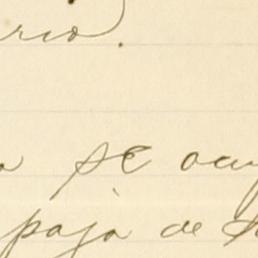 rio.
se ocu
paja de